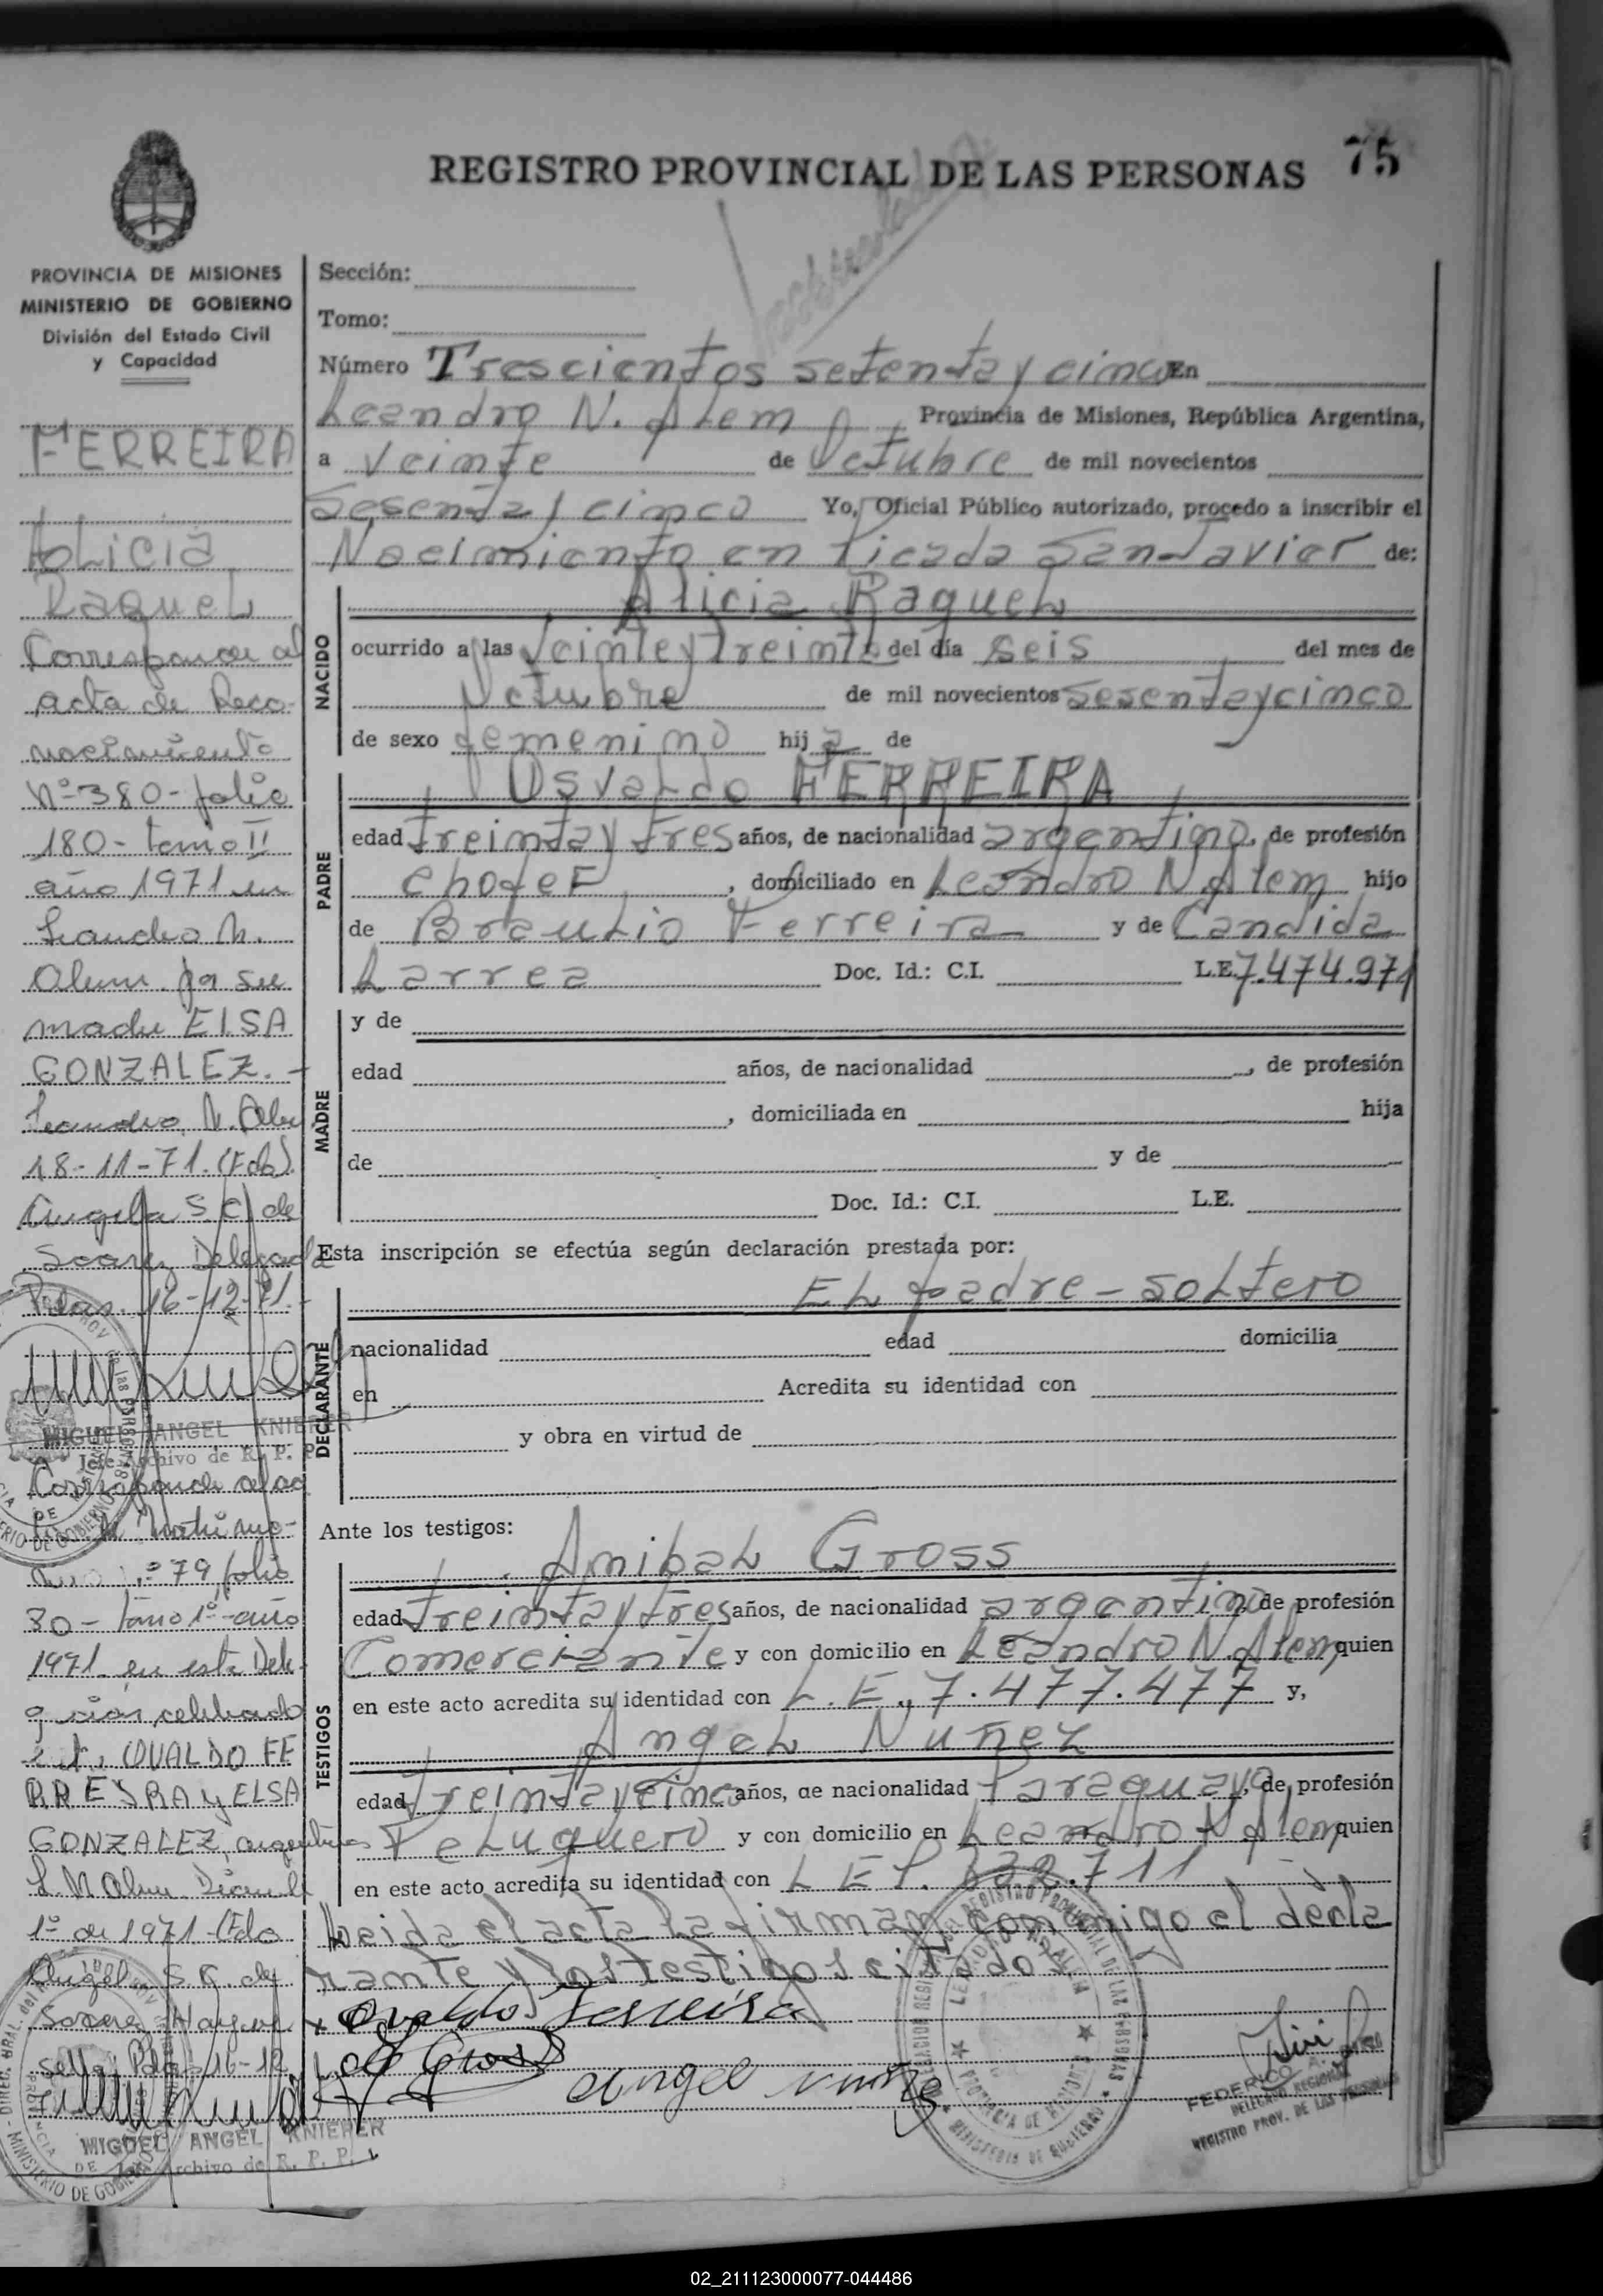 75
REGISTRO PROVINCIAL DE LAS PERSONAS
PROVINCIA DE MISIONES
MINISTERIO DE GOBIERNO
División del Estado Civil
y Capacidad
FERREIRA
Alicia
Raquel
Corresponde al
acta de Reco-
nocimiento
Nº 380 - folio
180 - tomo II
año 1971 en
Leandro N.
Alem por su
madre ELSA
GONZALEZ. -
Leandro N. Alem
18-11-71. (Fdo)
Angela S. C. de
Soarez Delegada
Pdas. 16-12-71.
MIGUEL ANGEL KNIEPER
Jefe Archivo de R. P. P.
Corresponde al ac
de Matrimo-
nio Nº 79 folio
30 - tomo 1º - año
1971 en esta Dele-
celebrado
OVALDO FE
RREYRA y ELSA
GONZALEZ, argentinos
L. N. Alem
1º de 1971 - (Fdo
Angela S. C. de
Soarez Hay un
sello. Pdas 16-12
MIGUEL ANGEL KNIEPER
Archivo de R. P. P.
Sección:
Tomo:
Número Trescientos setenta y cinco En
Leandro N. Alem Provincia de Misiones, República Argentina,
a Veinte de Octubre de mil novecientos
Sesenta y cinco Yo, Oficial Público autorizado, procedo a inscribir el
Nacimiento en Picada San Javier de:
NACIDO
Alicia Raquel
ocurrido a las Veinte y treinta del día seis del mes de
Octubre de mil novecientos Sesenta y cinco
de sexo femenino hija de
PADRE
Osvaldo FERREIRA
edad treinta y tres años, de nacionalidad argentino, de profesión
chofer, domiciliado en Leandro N Alem hijo
de Braulio Ferreira y de Candida
Larrea Doc. Id.: C.I. L.E. 7.474.971
MADRE
y de
edad años, de nacionalidad , de profesión
, domiciliada en hija
de y de
Doc. Id.: C.I. L.E.
Esta inscripción se efectúa según declaración prestada por:
DECLARANTE
El padre - soltero
nacionalidad edad domicilia
en Acredita su identidad con
y obra en virtud de
Ante los testigos:
TESTIGOS
Anibal Gross
edad treinta y tres años, de nacionalidad argentino de profesión
Comerciante y con domicilio en Leandro N. Alem quien
en este acto acredita su identidad con L.E., 7.477.477 y,
Angel Nuñez
edad treinta y cinco años, de nacionalidad Paraguayo, de profesión
Peluquero y con domicilio en Leandro N Alem quien
en este acto acredita su identidad con
Leida el acta la firman conmigo el decla
rante y los testigos citados
x Ovaldo Ferreira
Gross
angel
FEDERICO A.
DELEGADO REGIONAL
REGISTRO PROV. DE LAS PERSONAS
02_211123000077-044486